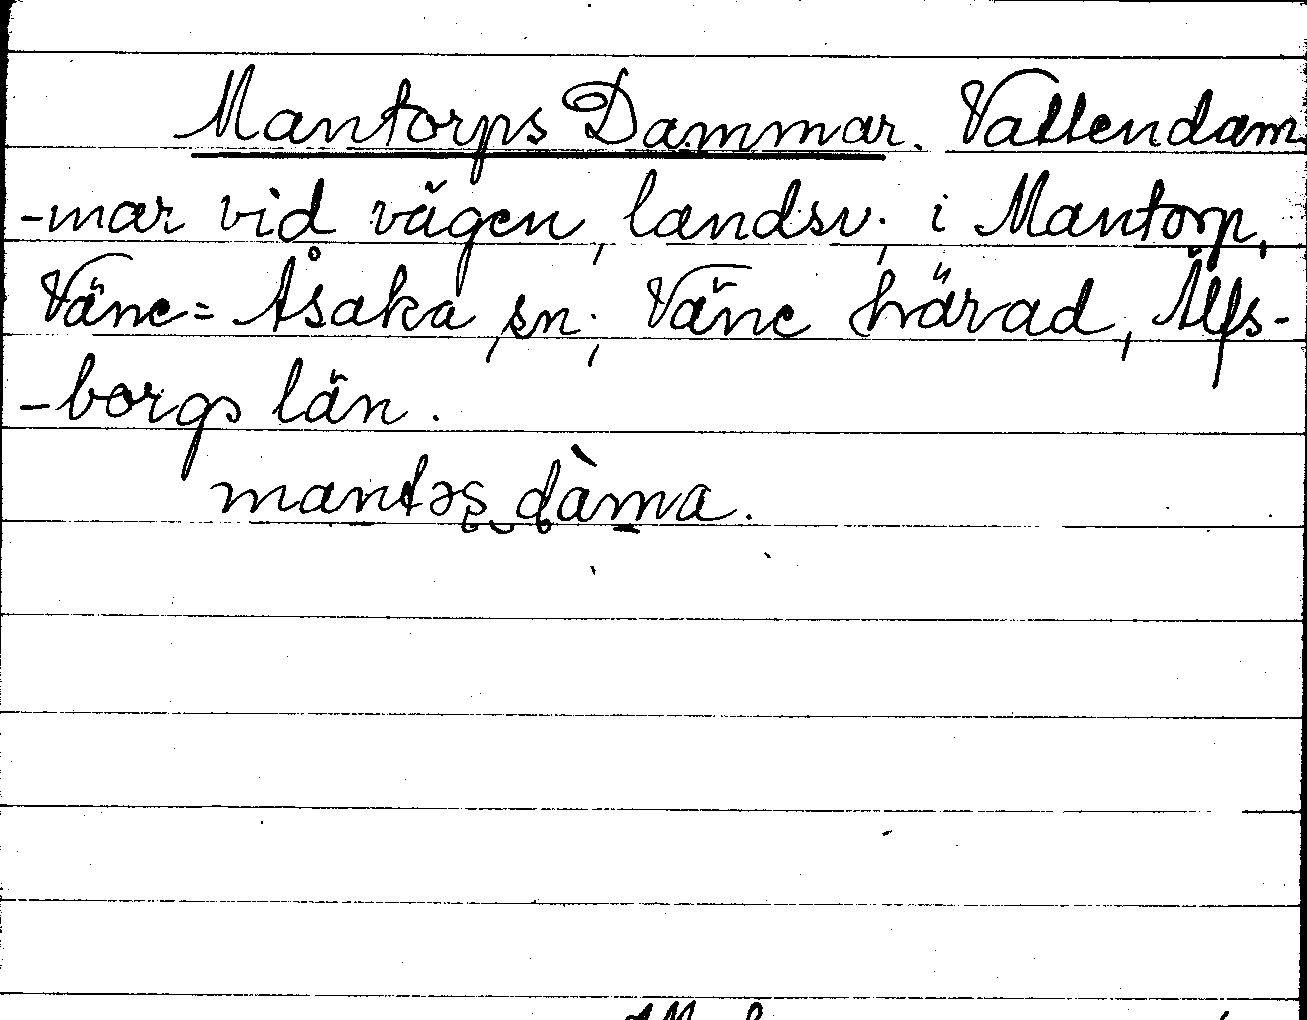 Mantorps Dammar. Vattendam
-mar vid vägen, landsv., i Mantorp,
Väne= Åsaka, sn., Väne härad, Älfs-
-borgs län.
mantəs dàma.